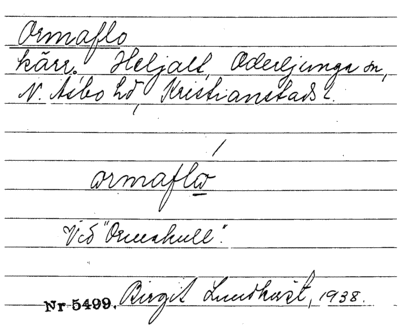 Ormaflo
kärr. Heljalt, Oderljunga sn,
N. Åsbo hd, Kristianstads l.
ormaflω
Vid "Ormakull".
Nr 5499. Birgit Lundkvist, 1938.